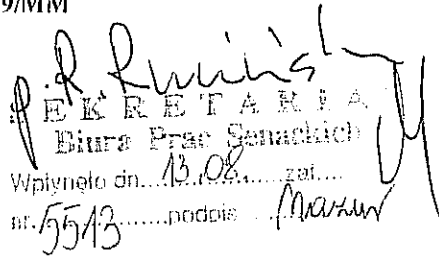 9/MM
p. R.
SEKRETARIAT
Biura Prac Senackich
Wpłynęło dn....13.08.....zał....
nr. 5513.......podpis ....Mazur